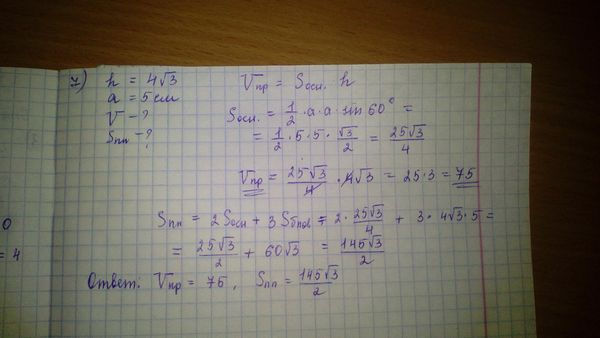 7) h = 4√3
a = 5 см
V - ?
Sпп - ?
Vпр = Sосн. h
Sосн. = 1/2 · a · a · sin 60° =
= 1/2 · 5 · 5 · √3/2 = 25√3/4
Vпр = 25√3/4 · 4√3 = 25·3 = 75
Sпп = 2Sосн + 3Sбпов = 2 · 25√3/4 + 3 · 4√3 · 5 =
= 25√3/2 + 60√3 = 145√3/2
Ответ: Vпр = 75, Sпп = 145√3/2
0
= 4